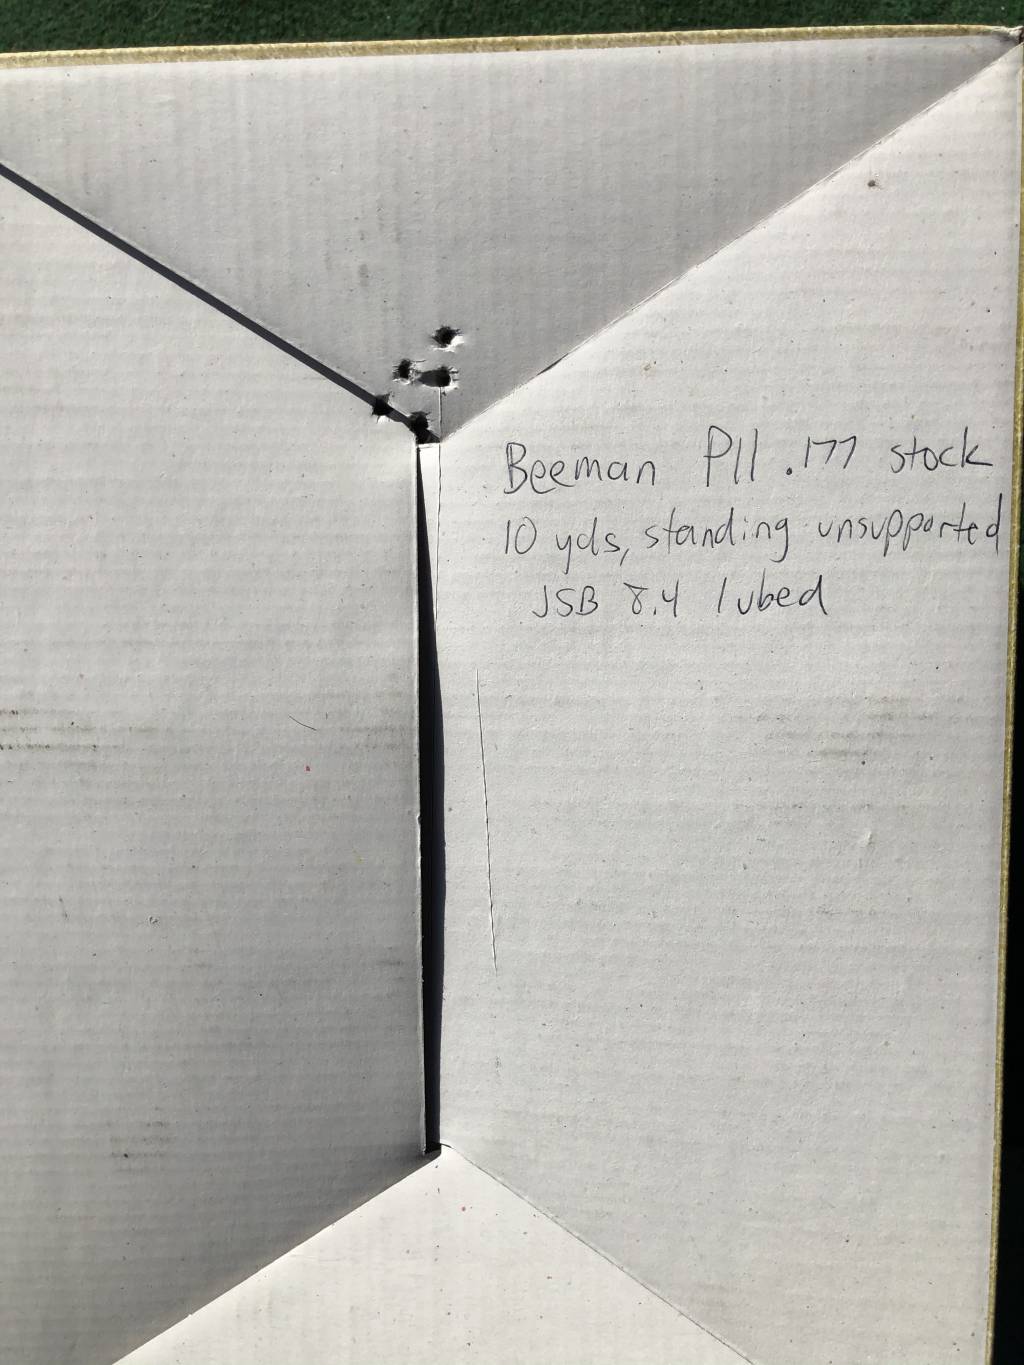 Beeman P11 .177 stock
10 yds, standing unsupported
JSB 8.4 lubed